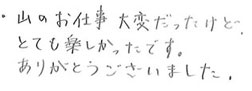 ・山のお仕事 大変だったけど、
とても楽しかったです。
ありがとうございました。